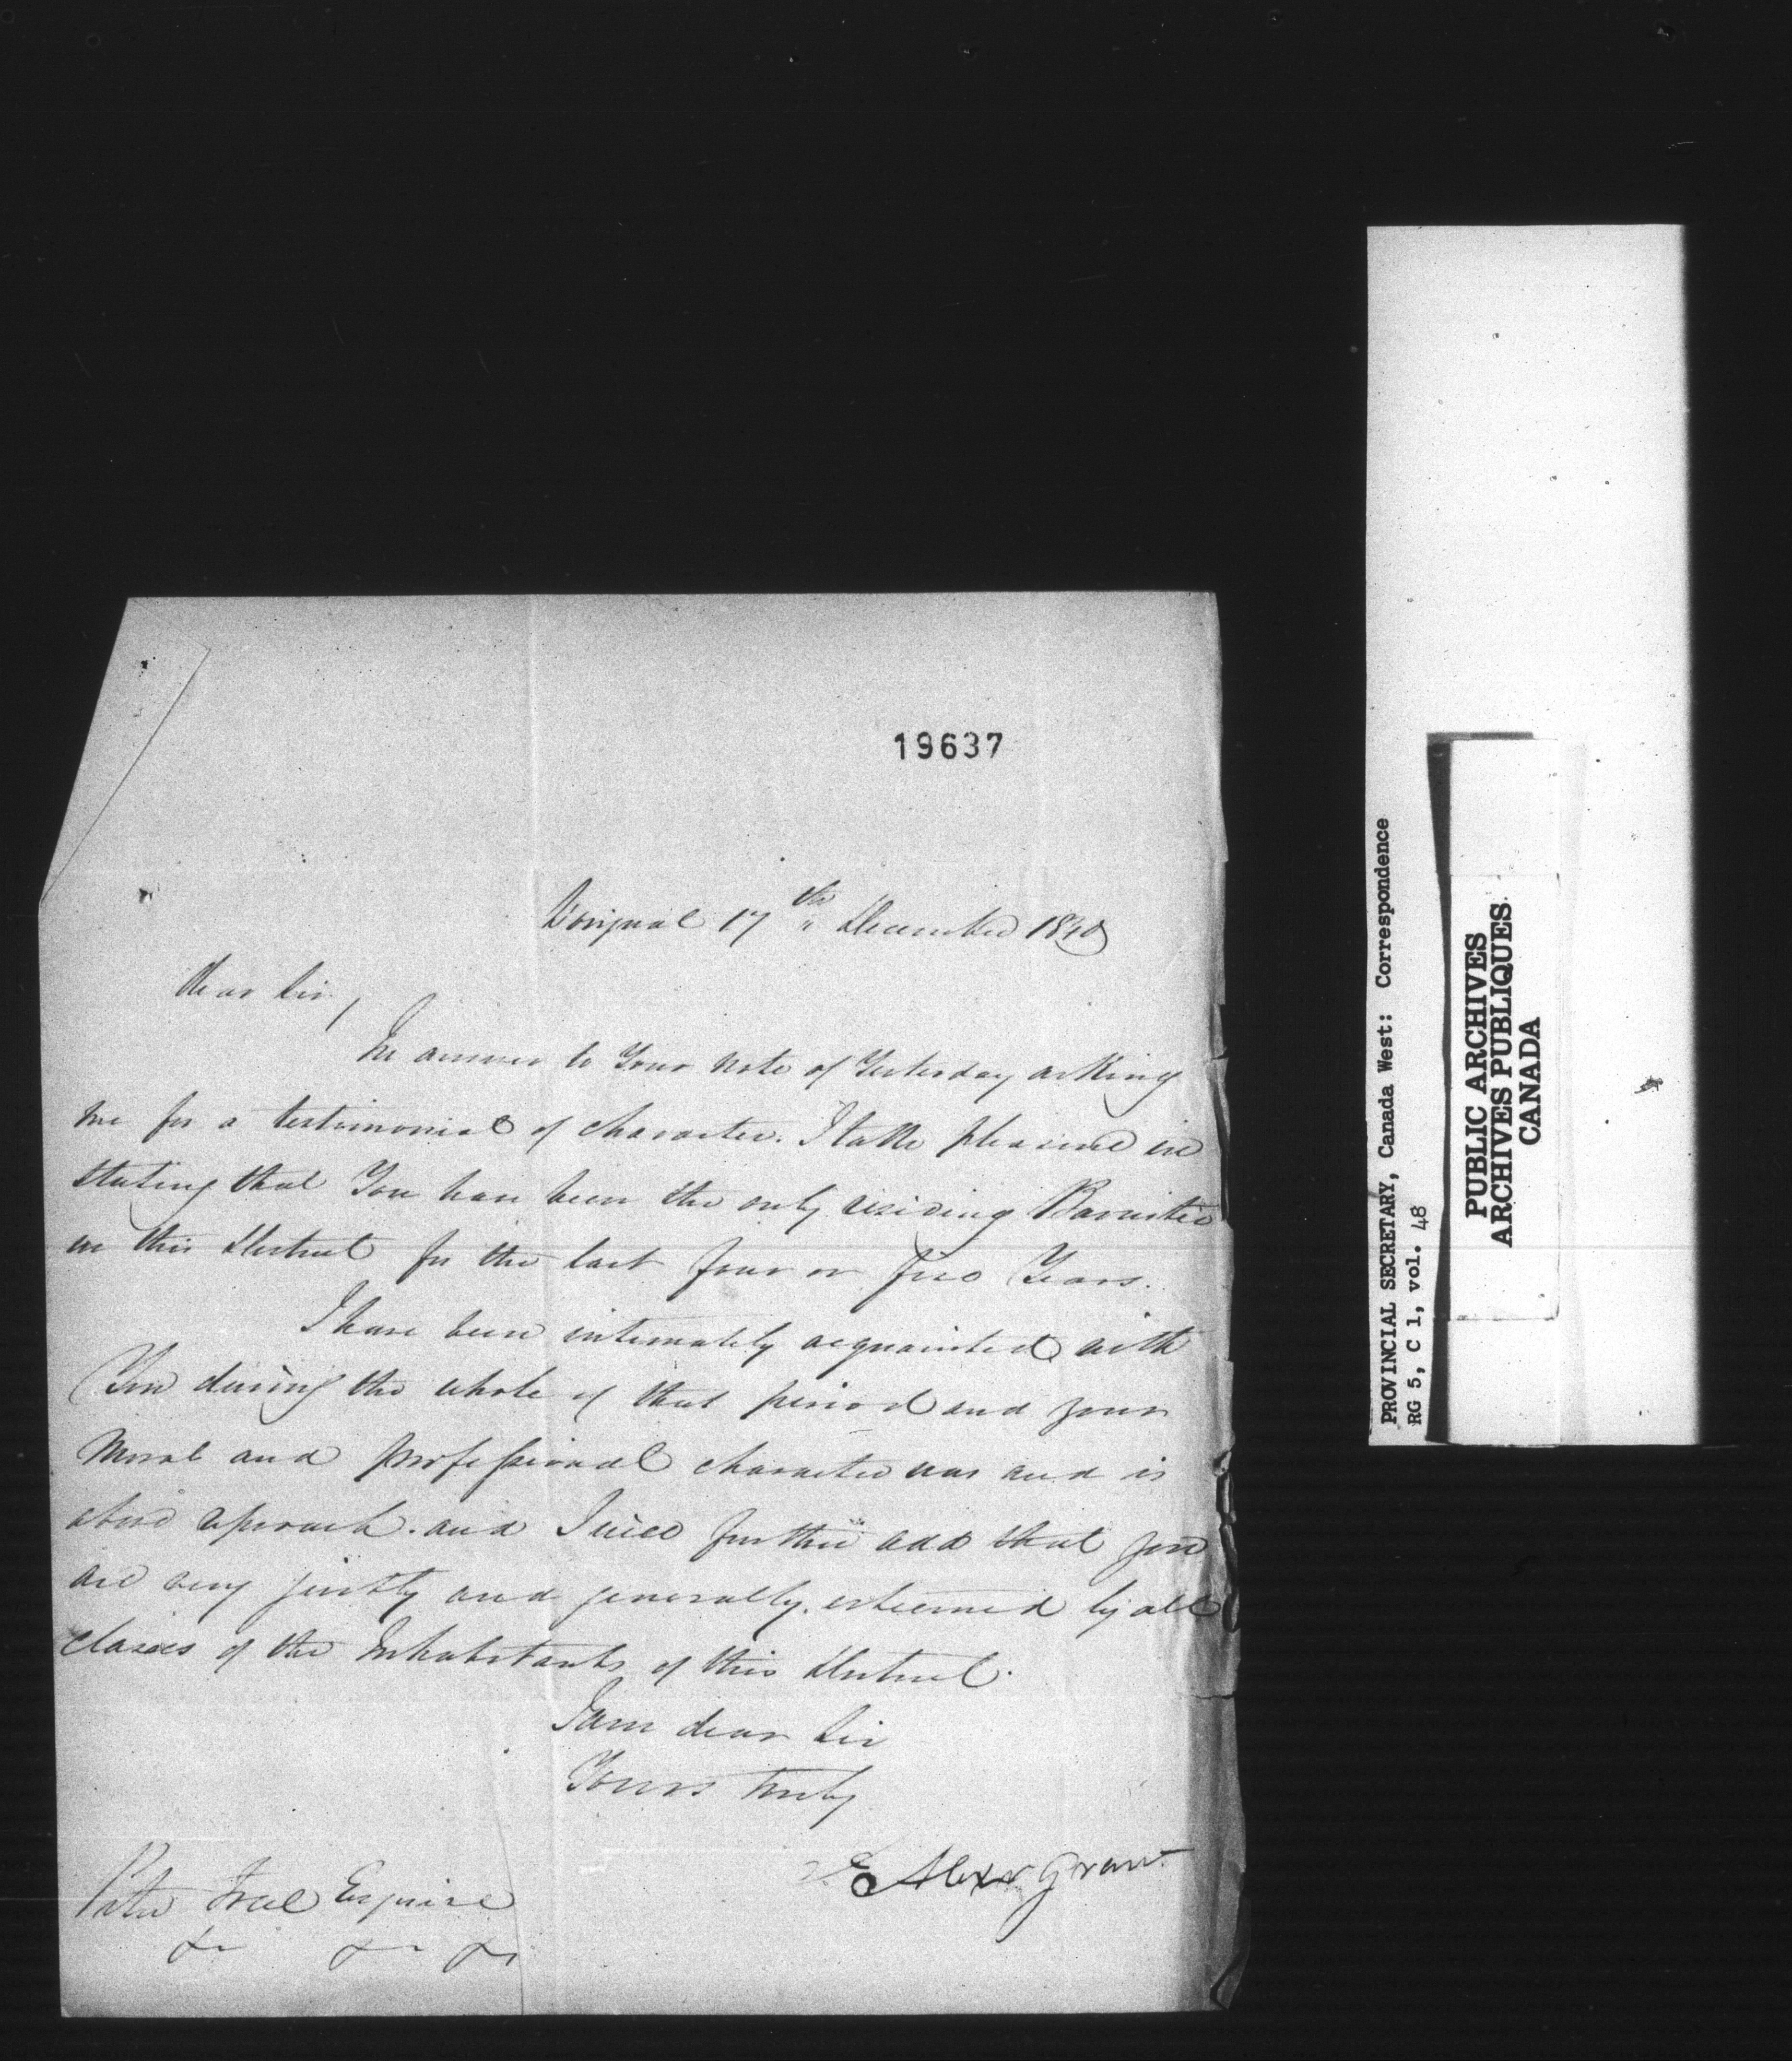 19637
L'orignal 17th December 1840
Dear Sir,
In answer to Your Note of Yesterday asking
me for a testimonial of character. I take pleasure in
stating that You have been the only residing Barrister
in this District for the last four or five Years.
I have been intimately acquainted with
You during the whole of that period and your
Moral and professional character was and is
above reproach. and I will further add that you
are very justly and generally esteemed by all
classes of the Inhabitants of this District.
I am dear Sir
Yours truly
Alexr Grant
Peter Freel Esquire
&c &c &c
PROVINCIAL SECRETARY, Canada West: Correspondence
RG 5, C 1, vol. 48
PUBLIC ARCHIVES
ARCHIVES PUBLIQUES
CANADA